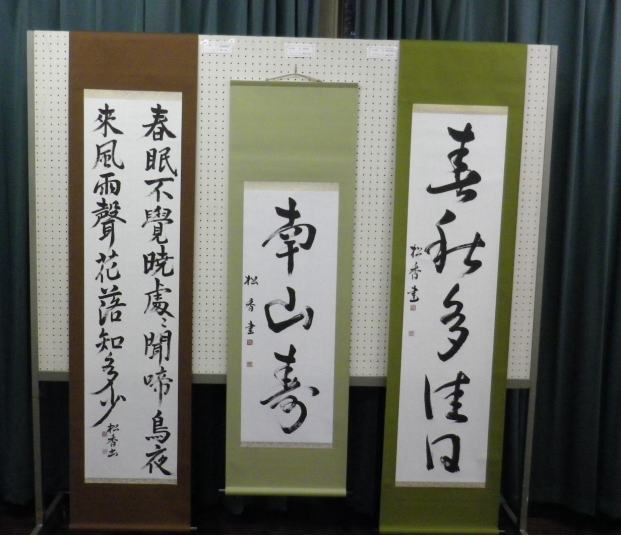 春秋多佳日
松香書
南山寿
松香書
春眠不覺曉處〻聞啼鳥夜
来風雨聲花落知多少
松香書